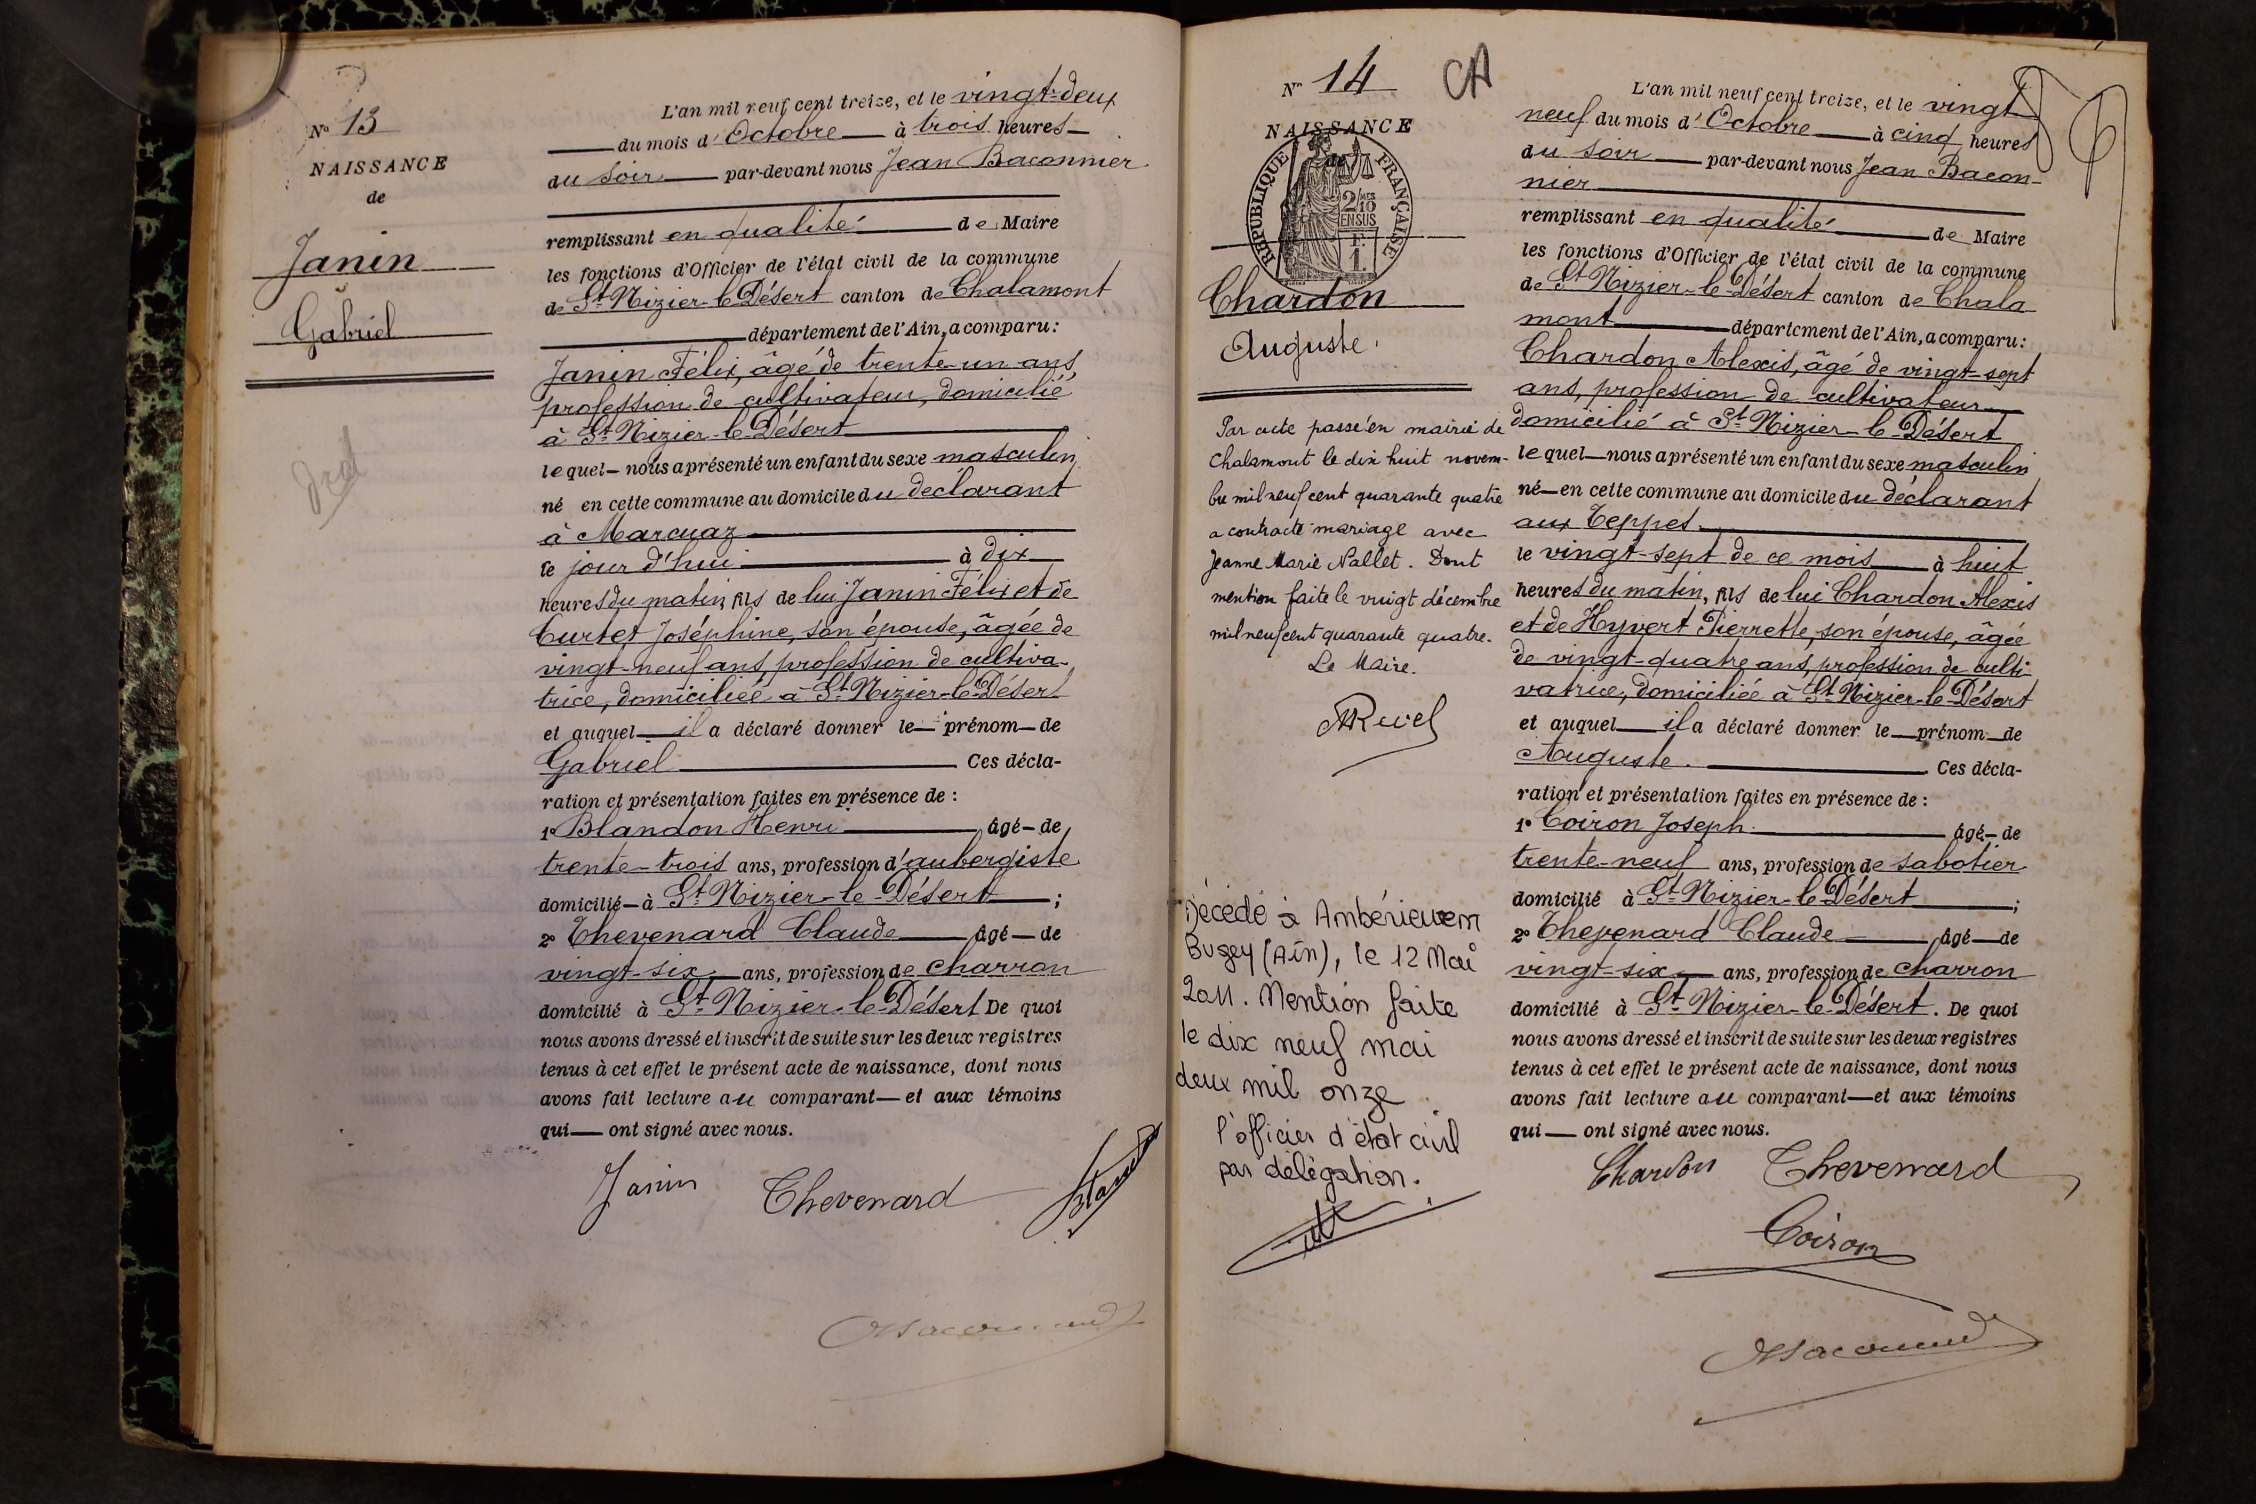 No 13
NAISSANCE
de
Janin
Gabriel
L'an mil neuf cent treize, et le vingt-deux
du mois d'Octobre à trois heures
du soir par-devant nous Jean Baconnier
remplissant en qualité de Maire
les fonctions d'Officier de l'état civil de la commune
de St Nizier-le-Désert canton de Chalamont
département de l'Ain, a comparu :
Janin Félix, âgé de trente-un ans,
profession de cultivateur, domicilié
à St Nizier-le-Désert
lequel nous a présenté un enfant du sexe masculin
né en cette commune au domicile du déclarant
à Marcuaz
le jour d'hui à dix
heures du matin, fils de lui Janin Félix et de
Curtet Joséphine, son épouse, âgée de
vingt-neuf ans, profession de cultiva-
trice, domiciliée à St Nizier-le-Désert
et auquel il a déclaré donner le prénom de
Gabriel Ces décla-
ration et présentation faites en présence de :
1o Blandon Henri âgé de
trente-trois ans, profession d'aubergiste
domicilié à St Nizier-le-Désert ;
2o Thevenard Claude âgé de
vingt-six ans, profession de charron
domicilié à St Nizier-le-Désert De quoi
nous avons dressé et inscrit de suite sur les deux registres
tenus à cet effet le présent acte de naissance, dont nous
avons fait lecture au comparant et aux témoins
qui ont signé avec nous.
Janin Thevenard
No 14 CA
NAISSANCE
de
RÉPUBLIQUE FRANÇAISE
2/10
EN SUS
F.
1.
Chardon
Auguste.
Par acte passé en mairie de
Chalamont le dix huit novem-
bre mil neuf cent quarante quatre
a contracté mariage avec
Jeanne Marie Nallet. Dont
mention faite le vingt décembre
mil neuf cent quarante quatre.
Le Maire.
Décédé à Ambérieu en
Bugey (Ain), le 12 Mai
2011. Mention faite
le dix neuf mai
deux mil onze
l'officier d'état civil
par délégation.
L'an mil neuf cent treize, et le vingt
neuf du mois d'Octobre à cinq heures
du soir par-devant nous Jean Bacon-
nier
remplissant en qualité de Maire
les fonctions d'Officier de l'état civil de la commune
de St Nizier-le-Désert canton de Chala
mont département de l'Ain, a comparu :
Chardon Alexis, âgé de vingt-sept
ans, profession de cultivateur
domicilié à St Nizier-le-Désert
lequel nous a présenté un enfant du sexe masculin
né en cette commune au domicile du déclarant
aux Teppes
le vingt-sept de ce mois à huit
heures du matin, fils de lui Chardon Alexis
et de Hyvert Pierrette, son épouse, âgée
de vingt-quatre ans, profession de culti-
vatrice, domiciliée à St Nizier-le-Désert
et auquel il a déclaré donner le prénom de
Auguste. Ces décla-
ration et présentation faites en présence de :
1o Coiron Joseph âgé de
trente-neuf ans, profession de sabotier
domicilié à St Nizier-le-Désert ;
2o Thevenard Claude âgé de
vingt-six ans, profession de charron
domicilié à St Nizier-le-Désert. De quoi
nous avons dressé et inscrit de suite sur les deux registres
tenus à cet effet le présent acte de naissance, dont nous
avons fait lecture au comparant et aux témoins
qui ont signé avec nous.
Chardon Thevenard
Coiron